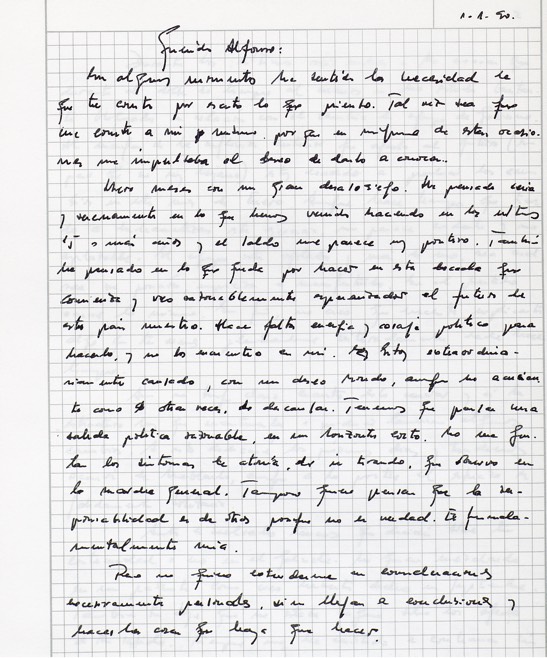 1-1-90.
Querido Alfonso:
En algún momento he sentido la necesidad de
que te conste por escrito lo que pienso. Tal vez sea que
me conste a mí mismo, porque en ninguna de estas ocasio-
nes me impulsaba el deseo de darlo a conocer.
Llevo meses con un gran desasosiego. He pensado seria
y serenamente en lo que hemos venido haciendo en los últimos
15 o más años y el saldo me parece muy positivo. También
he pensado en lo que queda por hacer en esta década que
comienza y veo razonablemente esperanzador el futuro de
este país nuestro. Hace falta energía y coraje político para
hacerlo, y no lo encuentro en mí. Estoy extraordina-
riamente cansado, con un deseo hondo, aunque no
como otras veces, de descansar. Tenemos que pensar una
salida política razonable, en un horizonte corto. No me gus-
tan los síntomas de atonía, de ir tirando, que observo en
la marcha general. Tampoco quiero pensar que la res-
ponsabilidad es de otros porque no es verdad. Es fundamentalmente
mía.
Pero no quiero extenderme en consideraciones
excesivamente personales, sin llegar a conclusiones y
hacer las cosas que haya que hacer.